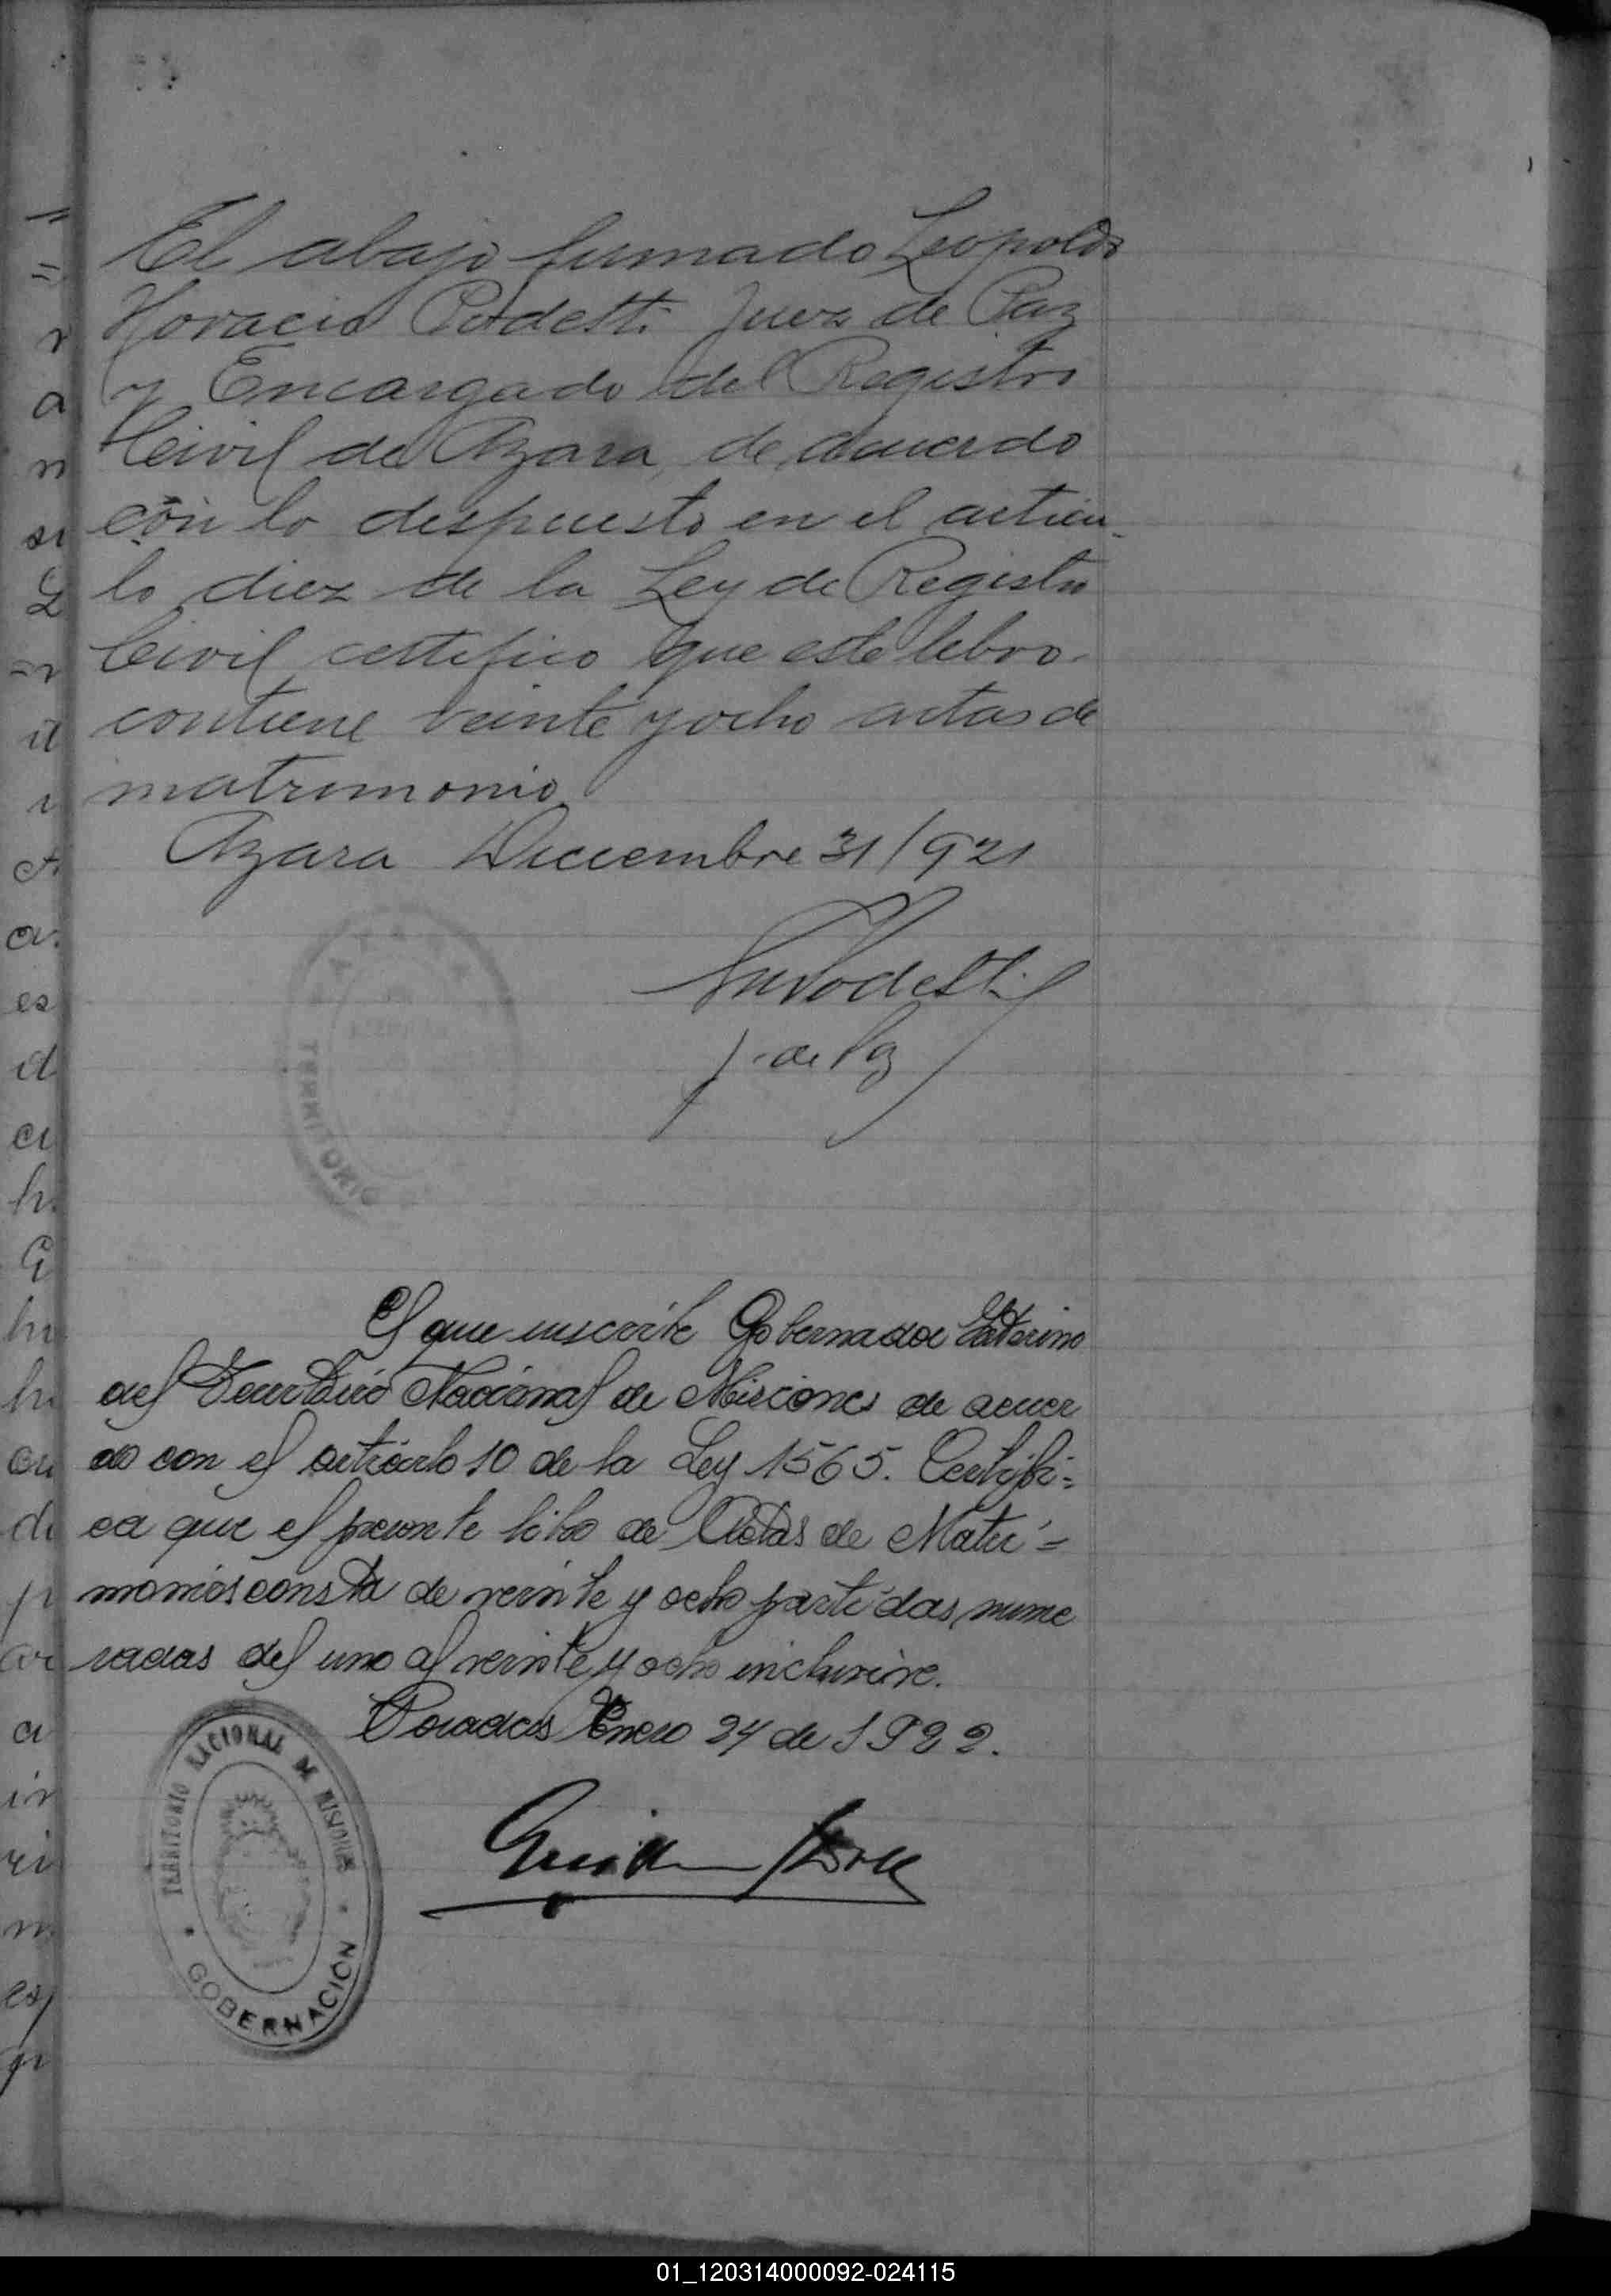 El abajo firmado Leopoldo
Horacio Podesti Juez de Paz
y Encargado del Registro
Civil de Azara, de acuerdo
con lo despuesto en el articu-
lo diez de la Ley de Registro
Civil certifico que este libro
contiene veinte y ocho actas de
matrimonio
Azara Diciembre 31/921
Podesti
J. de Paz
TERRITORIO
El que suscribe Gobernador Interino
del Territorio Nacional de Misiones de acuer
do con el artículo 10 de la Ley 1565. Certifi=
ca que el presente libro de Actas de Matri=
monios consta de veinte y ocho partidas nume
radas del uno al veinte y ocho inclusive.
Posadas Enero 24 de 1922.
TERRITORIO NACIONAL DE MISIONES
GOBERNACIÓN
01_120314000092-024115